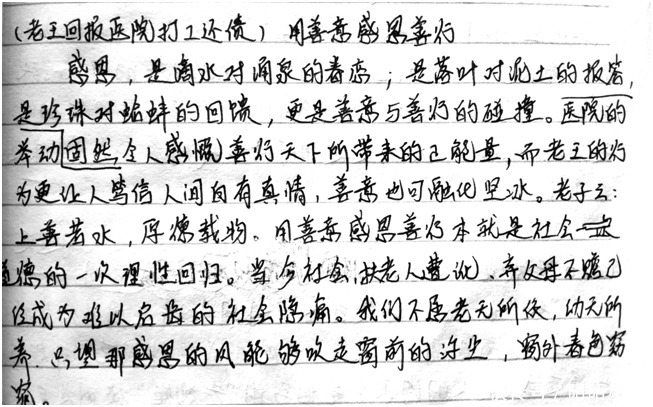 (老王回报医院打工还债) 用善意感恩善行
感恩,是滴水对涌泉的眷恋;是落叶对泥土的报答,
是珍珠对蚌的回馈,更是善意与善行的碰撞。医院的
举动固然令人感慨善行天下所带来的正能量,而老王的行
为更让人笃信人间自有真情,善意也可融化坚冰。老子云:
上善若水,厚德载物。用善意感恩善行本就是社会
道德的一次理性回归。当今社会,扶老人遭讹、弃父母不赡已
经成为难以启齿的社会隐痛。我们不愿老无所依,幼无所
养.只望那感恩的风能够吹走窗前的浮尘,窗外春色窈
窕。